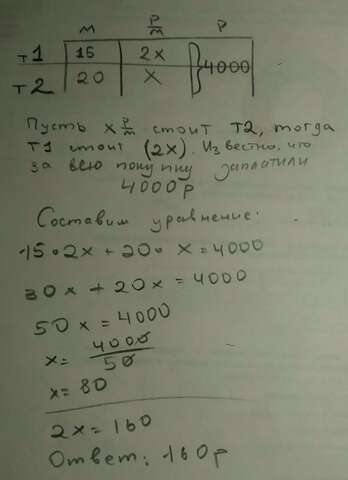 м р/м р
т1 15 2x } 4000
т2 20 x
Пусть x р/м стоит т2, тогда
т1 стоит (2x). Известно, что
за всю покупку заплатили
4000р
Составим уравнение:
15•2x + 20• x = 4000
30x + 20x = 4000
50x = 4000
x = 4000/50
x = 80
2x = 160
Ответ: 160р